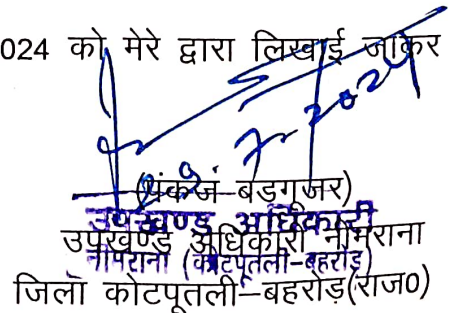 024 को मेरे द्वारा लिखाई जाकर
7-2024
(पंकज बडगूजर)
उपखण्ड अधिकारी
उपखण्ड अधिकारी नीमराना
नीमराना (कोटपूतली-बहरोड़)
जिला कोटपूतली–बहरोड़(राज0)